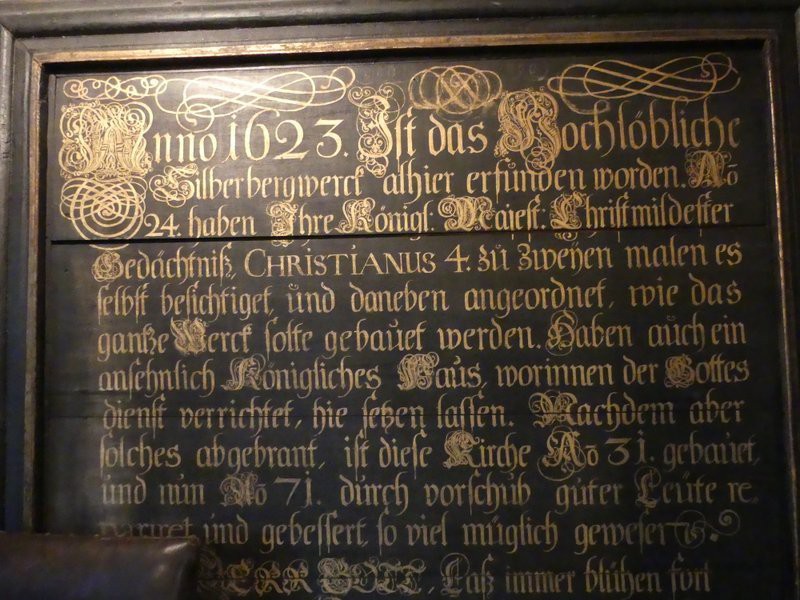 Anno 1623. Ist das Hochlöbliche
Silberbergwerck alhier erfunden worden. Aō
24. haben Ihre Königl: Majest: Christmildester
Gedächtniß, CHRISTIANUS 4. zu zweyen malen es
selbst besichtiget, und daneben angeordnet, wie das
gantze Werck solte gebauet werden. Haben auch ein
ansehnlich Königliches Haus, worinnen der Gottes
dienst verrichtet, hie setzen lassen. Nachdem aber
solches abgebrant, ist diese Kirche Aō 31. gebauet,
und nun Aō 71. durch vorschub guter Leute re,
und gebessert, so viel müglich gewesen.
HERR GOTT, Laß immer blühen fort